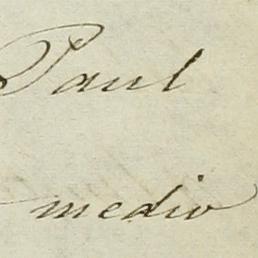 Paul
medio